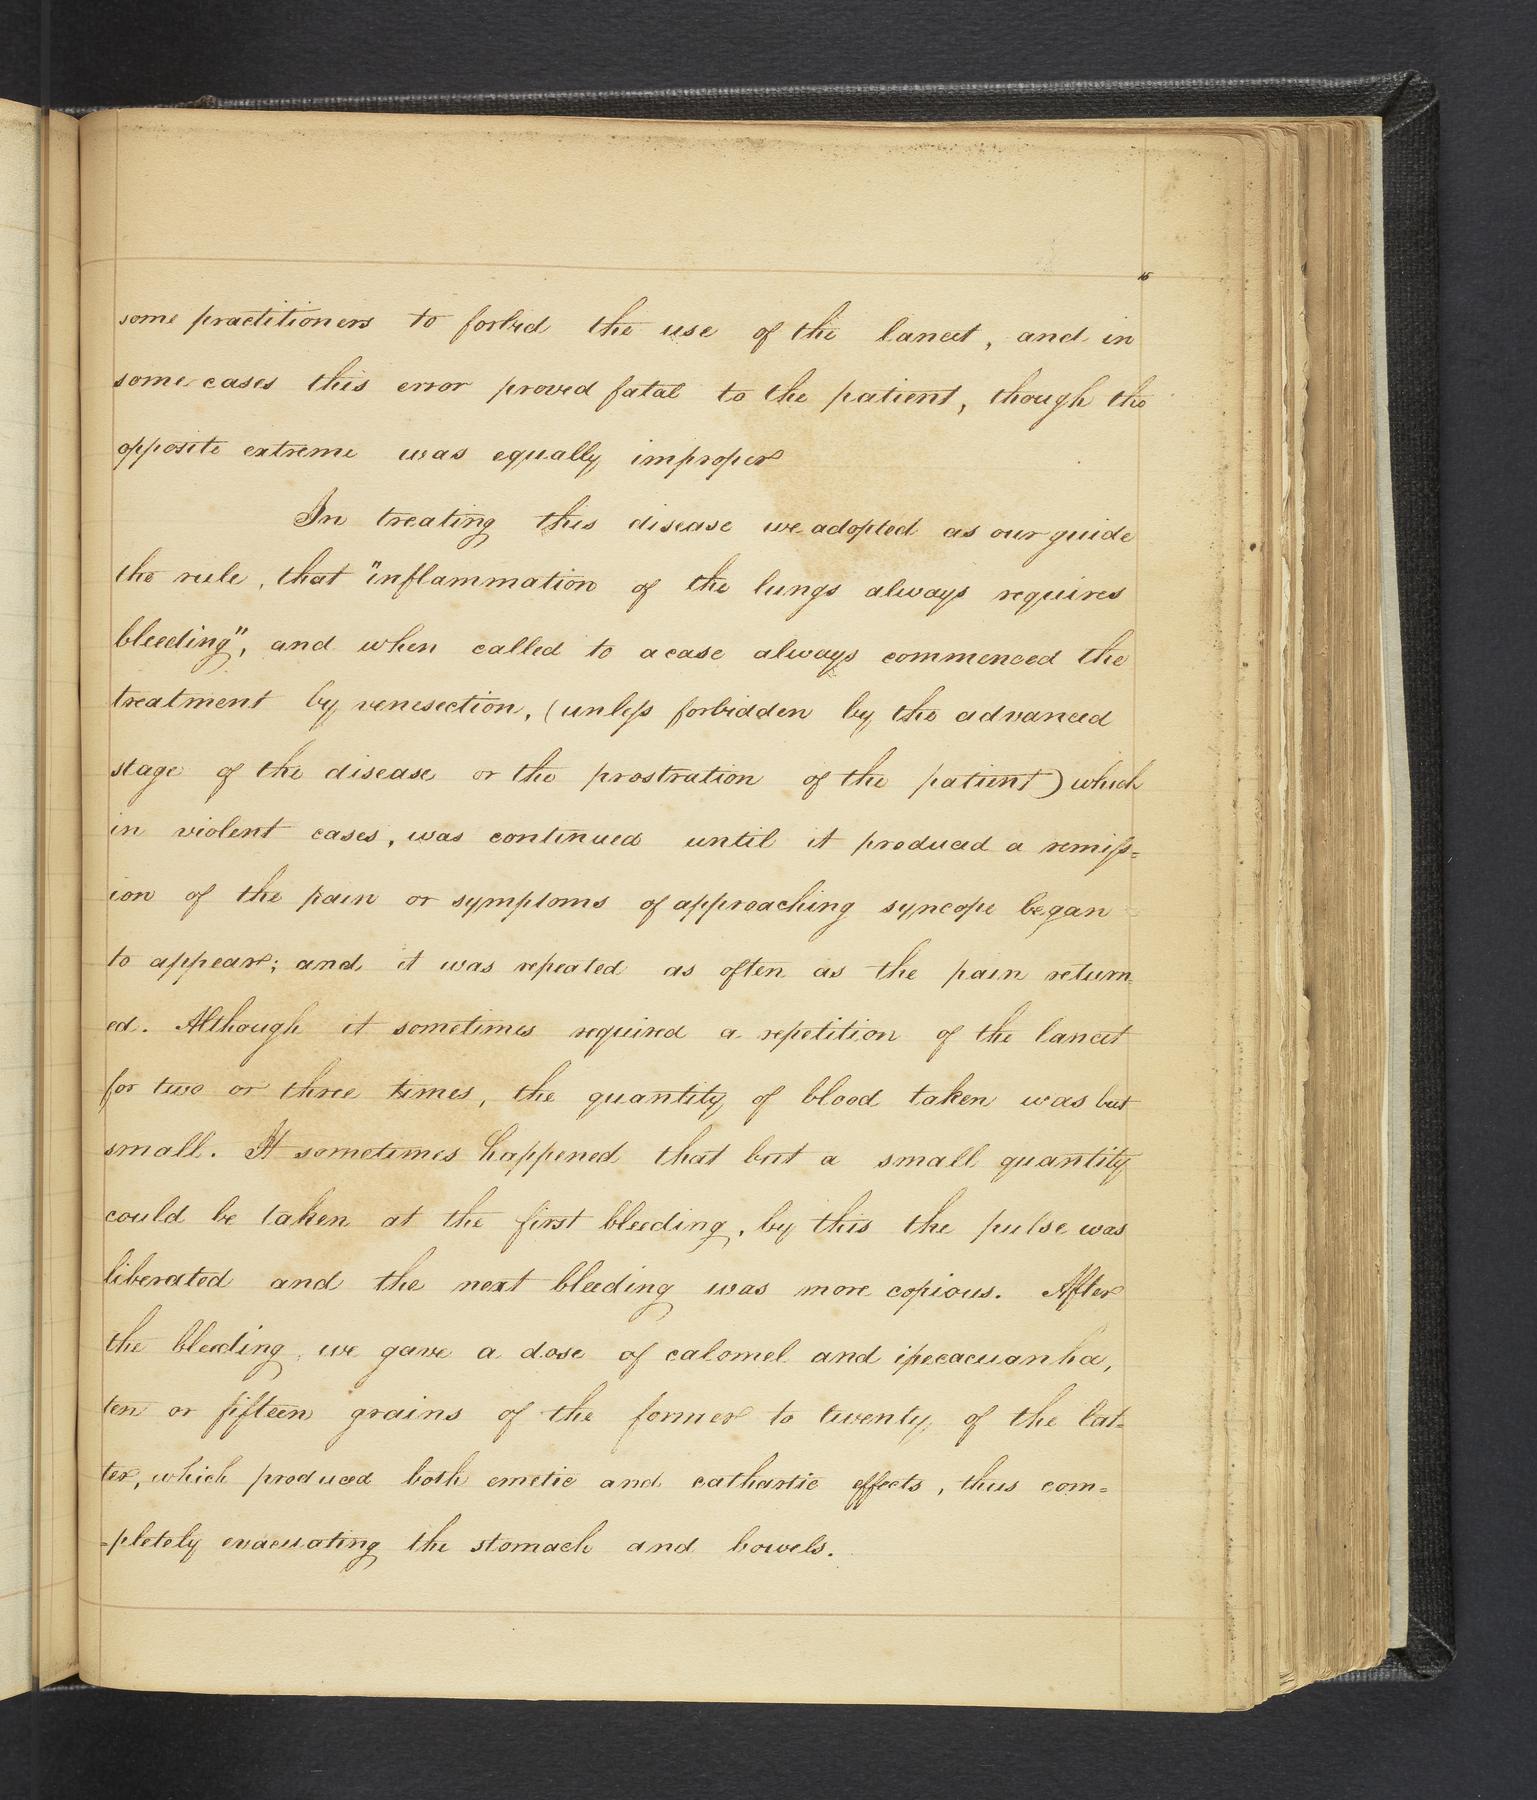 15
some practitioners to forbid the use of the lancet, and in
some cases this error proved fatal to the patient, though the
opposite extreme was equally improper
In treating this disease we adopted as our guide
the rule, that "inflammation of the lungs always requires
bleeding", and when called to a case always commenced the
treatment by venesection, (unless forbidden by the advanced
stage of the disease or the prostration of the patient) which
in violent cases, was continued until it produced a remiss=
ion of the pain or symptoms of approaching syncope began
to appear; and it was repeated as often as the pain return
ed. Although it sometimes required a repetition of the lancet
for two or three times, the quantity of blood taken was but
small. It sometimes happened that but a small quantity
could be taken at the first bleeding, by this the pulse was
liberated and the next bleeding was more copious. After
the bleeding, we gave a dose of calomel and ipecacuanha,
ten or fifteen grains of the former to twenty, of the lat=
ter, which produced both emetic and cathartic effects, thus com=
=pletely evacuating the stomach and bowels.